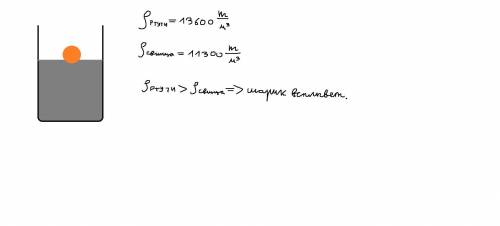 ρртути = 13600 т/м³
ρсвинца = 11300 т/м³
ρртути > ρсвинца => шарик всплывет.